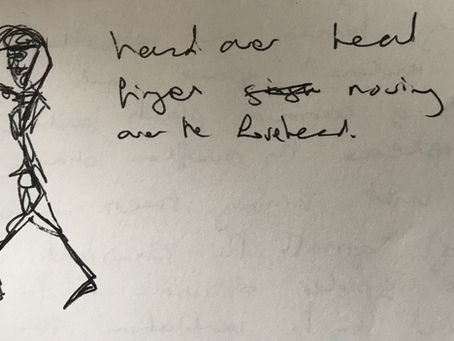 hand over head
finger moving
over the forehead.